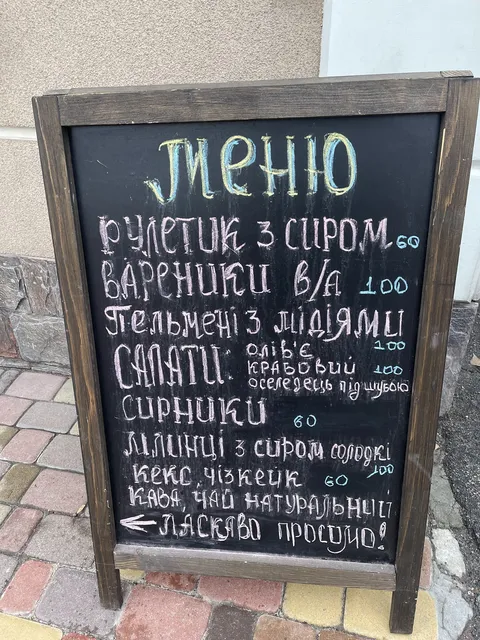 Меню
Рулетик з сиром 60
Вареники в/а 100
Пельмені з мідіями
100
Салати: олів'є
крабовий 100
оселедець під шубою
Сирники 60
Млинці з сиром солодкі
100
кекс, чізкейк 60
Кава, чай натуральний
← Ласкаво просимо!